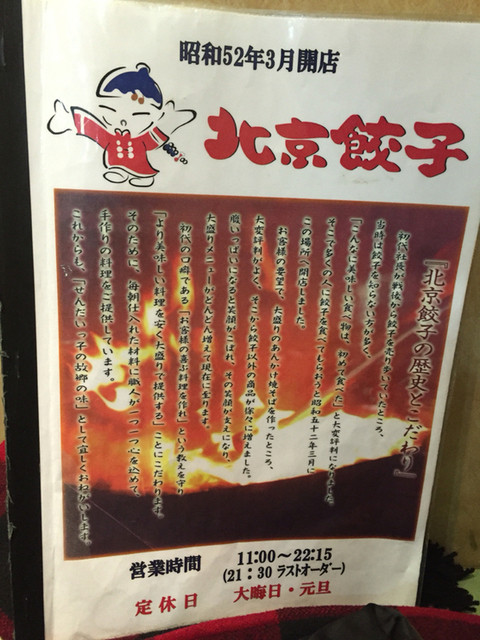 昭和52年3月開店
北京餃子
『北京餃子の歴史とこだわり』
初代社長が戦後から餃子を売り歩いていたところ、
当時は餃子を知らない方が多く、
「こんなに美味しい食べ物は、初めて食べた」と大変評判になりました。
そこで多くの人に餃子を食べてもらおうと昭和五十二年三月に
この場所で開店しました。
お客様の要望で、大盛りのあんかけ焼そばを作ったところ、
大変評判がよく、そこから餃子以外の商品が徐々に増えました。
腹いっぱいになると笑顔がこぼれ、その笑顔が支えになり、
大盛りメニューがどんどん増えて現在に至ります。
初代の口癖である「お客様の喜ぶ料理を作れ」という教えを守り
「より美味しい料理を安く大盛りで提供する」ことにこだわります。
そのために、毎朝仕入れた材料に職人が一つ一つ心を込めて、
手作りの料理をご提供しています。
これからも、「せんだいっ子の故郷の味」として宜しくおねがいします。
営業時間 11:00～22:15
(21:30 ラストオーダー)
定休日 大晦日・元旦